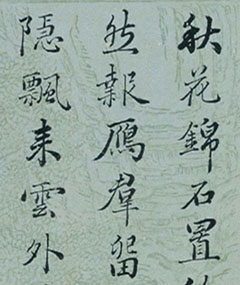 秋花錦石置
然報鴈羣留
隱飄来雲外